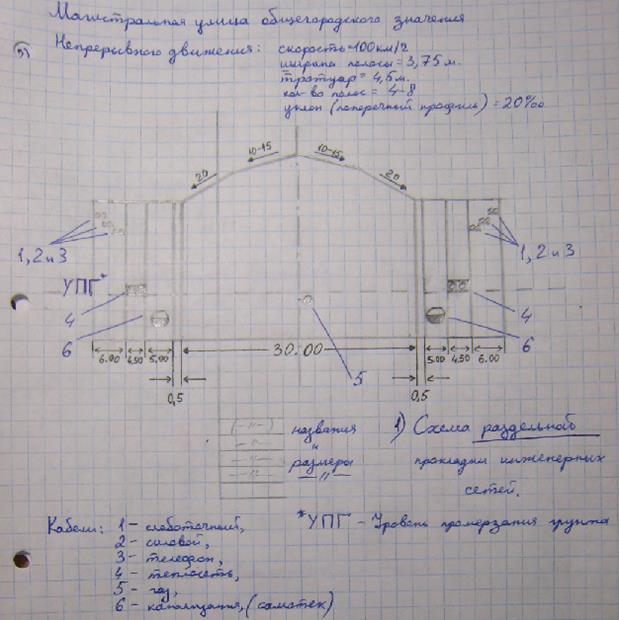 Магистральная улица общегородского значения
Непрерывного движения: скорость=100км/г
ширина полосы=3,75м.
тротуар=4,5м.
кол-во полос= 4-8
уклон (поперечный профиль)=20‰
20 10-15 10-15 20
1,2 и 3 1,2 и 3
УПГ*
4 4
6 6
6.00 4.50 5.00 30.00 5.00 4.50 6.00
5
0,5 0,5
(-"-) названия
-"- и
-"- размеры
-"- -"-
1) Схема раздельной
прокладки инженерных
сетей.
Кабели: 1 - слаботочный,
2 - силовой,
3 - телефон,
4 - теплосеть,
5 - газ,
6 - канализация, (самотек)
*УПГ - Уровень промерзания грунта